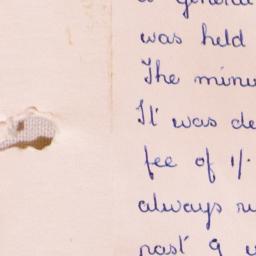 a general
was held
The minu
It was de
fee of 1/-
always ru
past 9 u